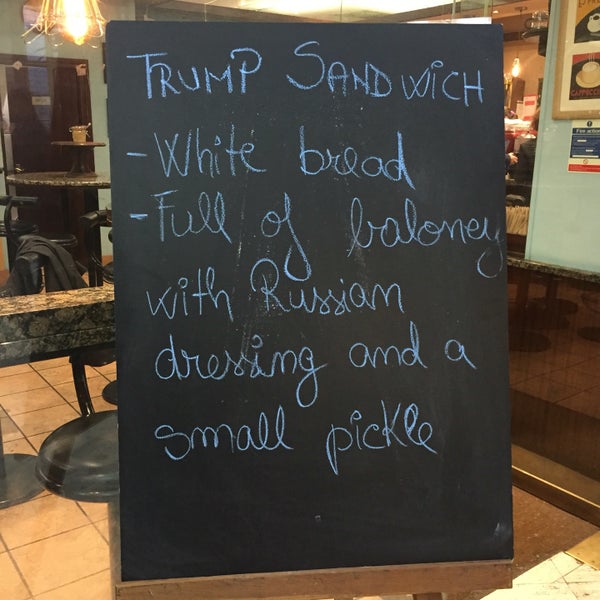 TRUMP SANDWICH
- White bread
- Full of baloney
with Russian
dressing and a
small pickle
Fire action
CAPPUCCINO